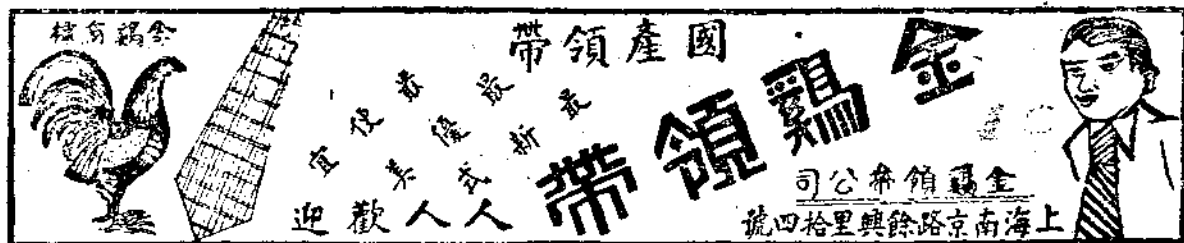 國產領帶
金鷄領帶
最新式
最優美
最便宜
人人歡迎
金鷄領帶公司
上海南京路餘興里拾四號
金鷄商標